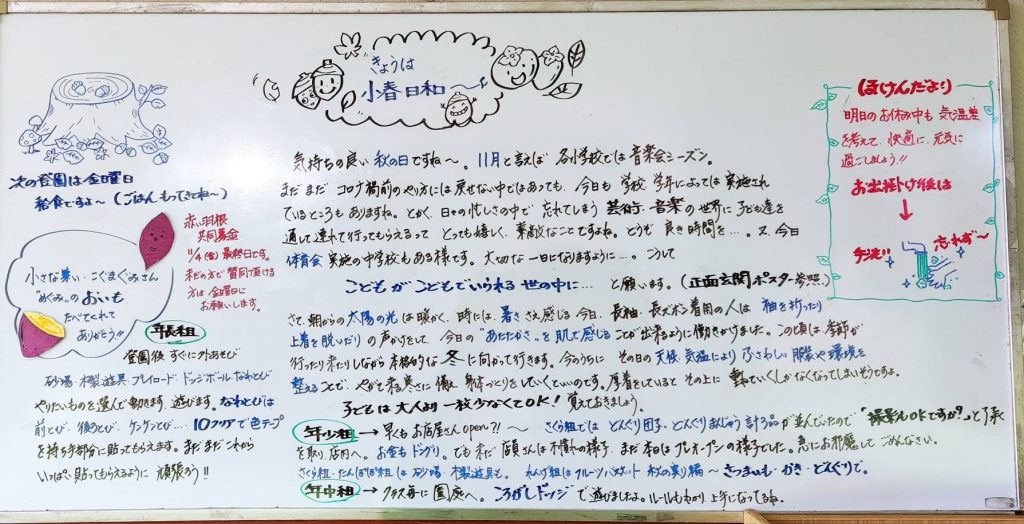 きょうは
小春日和
次の登園は金曜日
給食ですよ～(ごはんもってきてね～)
赤い羽根
共同募金
11/4(金)最終日です。
まだの方で賛同頂ける
方は金曜日に
お願いします。
小さな集い・こぐまぐみさん
"めぐみ"のおいも
たべてくれて
ありがとう!!
年長組
登園後すぐに外あそび
砂場・木製遊具・プレイロード・ドッジボール・なわとび
やりたいものを選んで動きます、遊びます。なわとびは
前とび、後ろとび、ケンケンとび…10クリアで色テープ
を持ち手部分に貼ってもらえます。まだまだこれから
いっぱい貼ってもらえるように頑張ろう!!
気持ちの良い秋の日ですね～。11月と言えば 各小学校では音楽会シーズン。
まだまだコロナ禍前のやり方には戻せない中ではあっても、今日も学校、学年によっては実施され
ているところもありますね。とかく、日々の忙しさの中で忘れてしまう芸術・音楽の世界に子ども達を
通して連れて行ってもらえるって とっても嬉しく、素敵なことですよね。どうぞ良き時間を…。又、今日
体育会実施の中学校もある様です。大切な一日になりますように…。こうして
こどもがこどもでいられる世の中に…と願います。(正面玄関ポスター参照)
さて、朝からの太陽の光は暖かく、時には、暑ささえ感じる今日、長袖・長ズボン着用の人は 袖を折ったり
上着を脱いだりの声かけをして 今日の"あたたかさ"を肌で感じることが出来るように働きかけました。この頃は季節が
行ったり来たりしながら本格的な冬に向かって行きます。今のうちに その日の天候・気温によりふさわしい服装や環境を
整えることで、やがて来る寒さに備え 身体づくりをしていくといいのです。厚着をしていると その上に重ねていくしかなくなってしまいそうですよ。
子どもは大人より一枚少なくてOK!覚えておきましょう。
年少組→早くもお店屋さんopen?!～さくら組では どんぐり団子・どんぐりまんじゅう 計9品が並んでいたので「撮影もOKですか?」と了承
を取り店内へ。お金もドングリ。でもまだ店員さんは不慣れの様子。まだ本日はプレオープンの様子でした。急にお邪魔してごめんなさい。
さくら組・たんぽぽ組は 砂場・木製遊具も。れんげ組はフルーツバスケット 秋の実り編～さつまいも・かき・どんぐりで。
年中組→クラス毎に園庭へ。ころがしドッジで遊びましたよ。ルールもわかり 上手になってるね。
ほけんだより
明日のお休み中も 気温差
を考えて、快適に、元気に
過ごしましょう!!
お出掛け後は
↓
手洗い 忘れず～